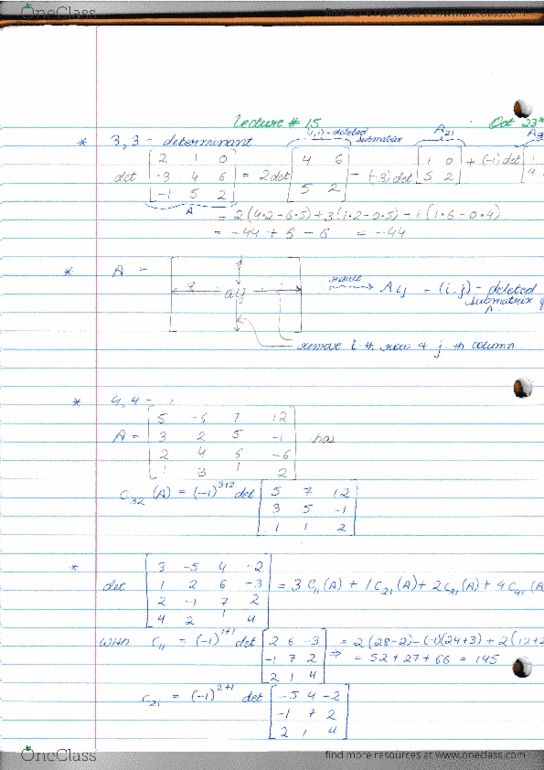 OneClass
find more resources at www.oneclass.com
Lecture # 15 Oct 23
(1,1)-deleted submatrix A21
* 3,3 - determinant
det [2 1 0; -3 4 6; -1 5 2] = 2det [4 6; 5 2] - (-3) det [1 0; 5 2] + (-1) det [1
A
= 2(4·2-6·5)+3(1·2-0·5)-1(1·6-0·4)
= -44 + 6 - 6 = -44
* A = aij → Aij - (i,j) - deleted
submatrix of
A.
remove i-th row & j-th column
* 4,4 -
A = [5 -5 7 12; 3 2 5 -1; 2 4 6 -6; 1 3 1 2] has
C32 (A) = (-1)^3+2 det [5 7 12; 3 5 -1; 1 1 2]
* det [3 -5 4 -2; 1 2 6 -3; 2 -1 7 2; 4 2 1 4] = 3 C11(A) + 1 C21(A) + 2C31(A) + 4C41(A)
with C11 = (-1)^1+1 det [2 6 -3; -1 7 2; 2 1 4] ⇒ = 2(28-2)-(-1)(24+3)+2(12+2
= 52+27+66 = 145
C21 = (-1)^2+1 det [-5 4 -2; -1 7 2; 2 1 4]
OneClass
find more resources at www.oneclass.com